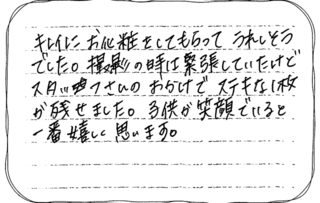 キレイに お化粧をしてもらって うれしそう
でした。撮影の時は緊張していたけど
スタッフさんの おかげで ステキな1枚
が残せました。子供が笑顔でいると
一番嬉しく思います。